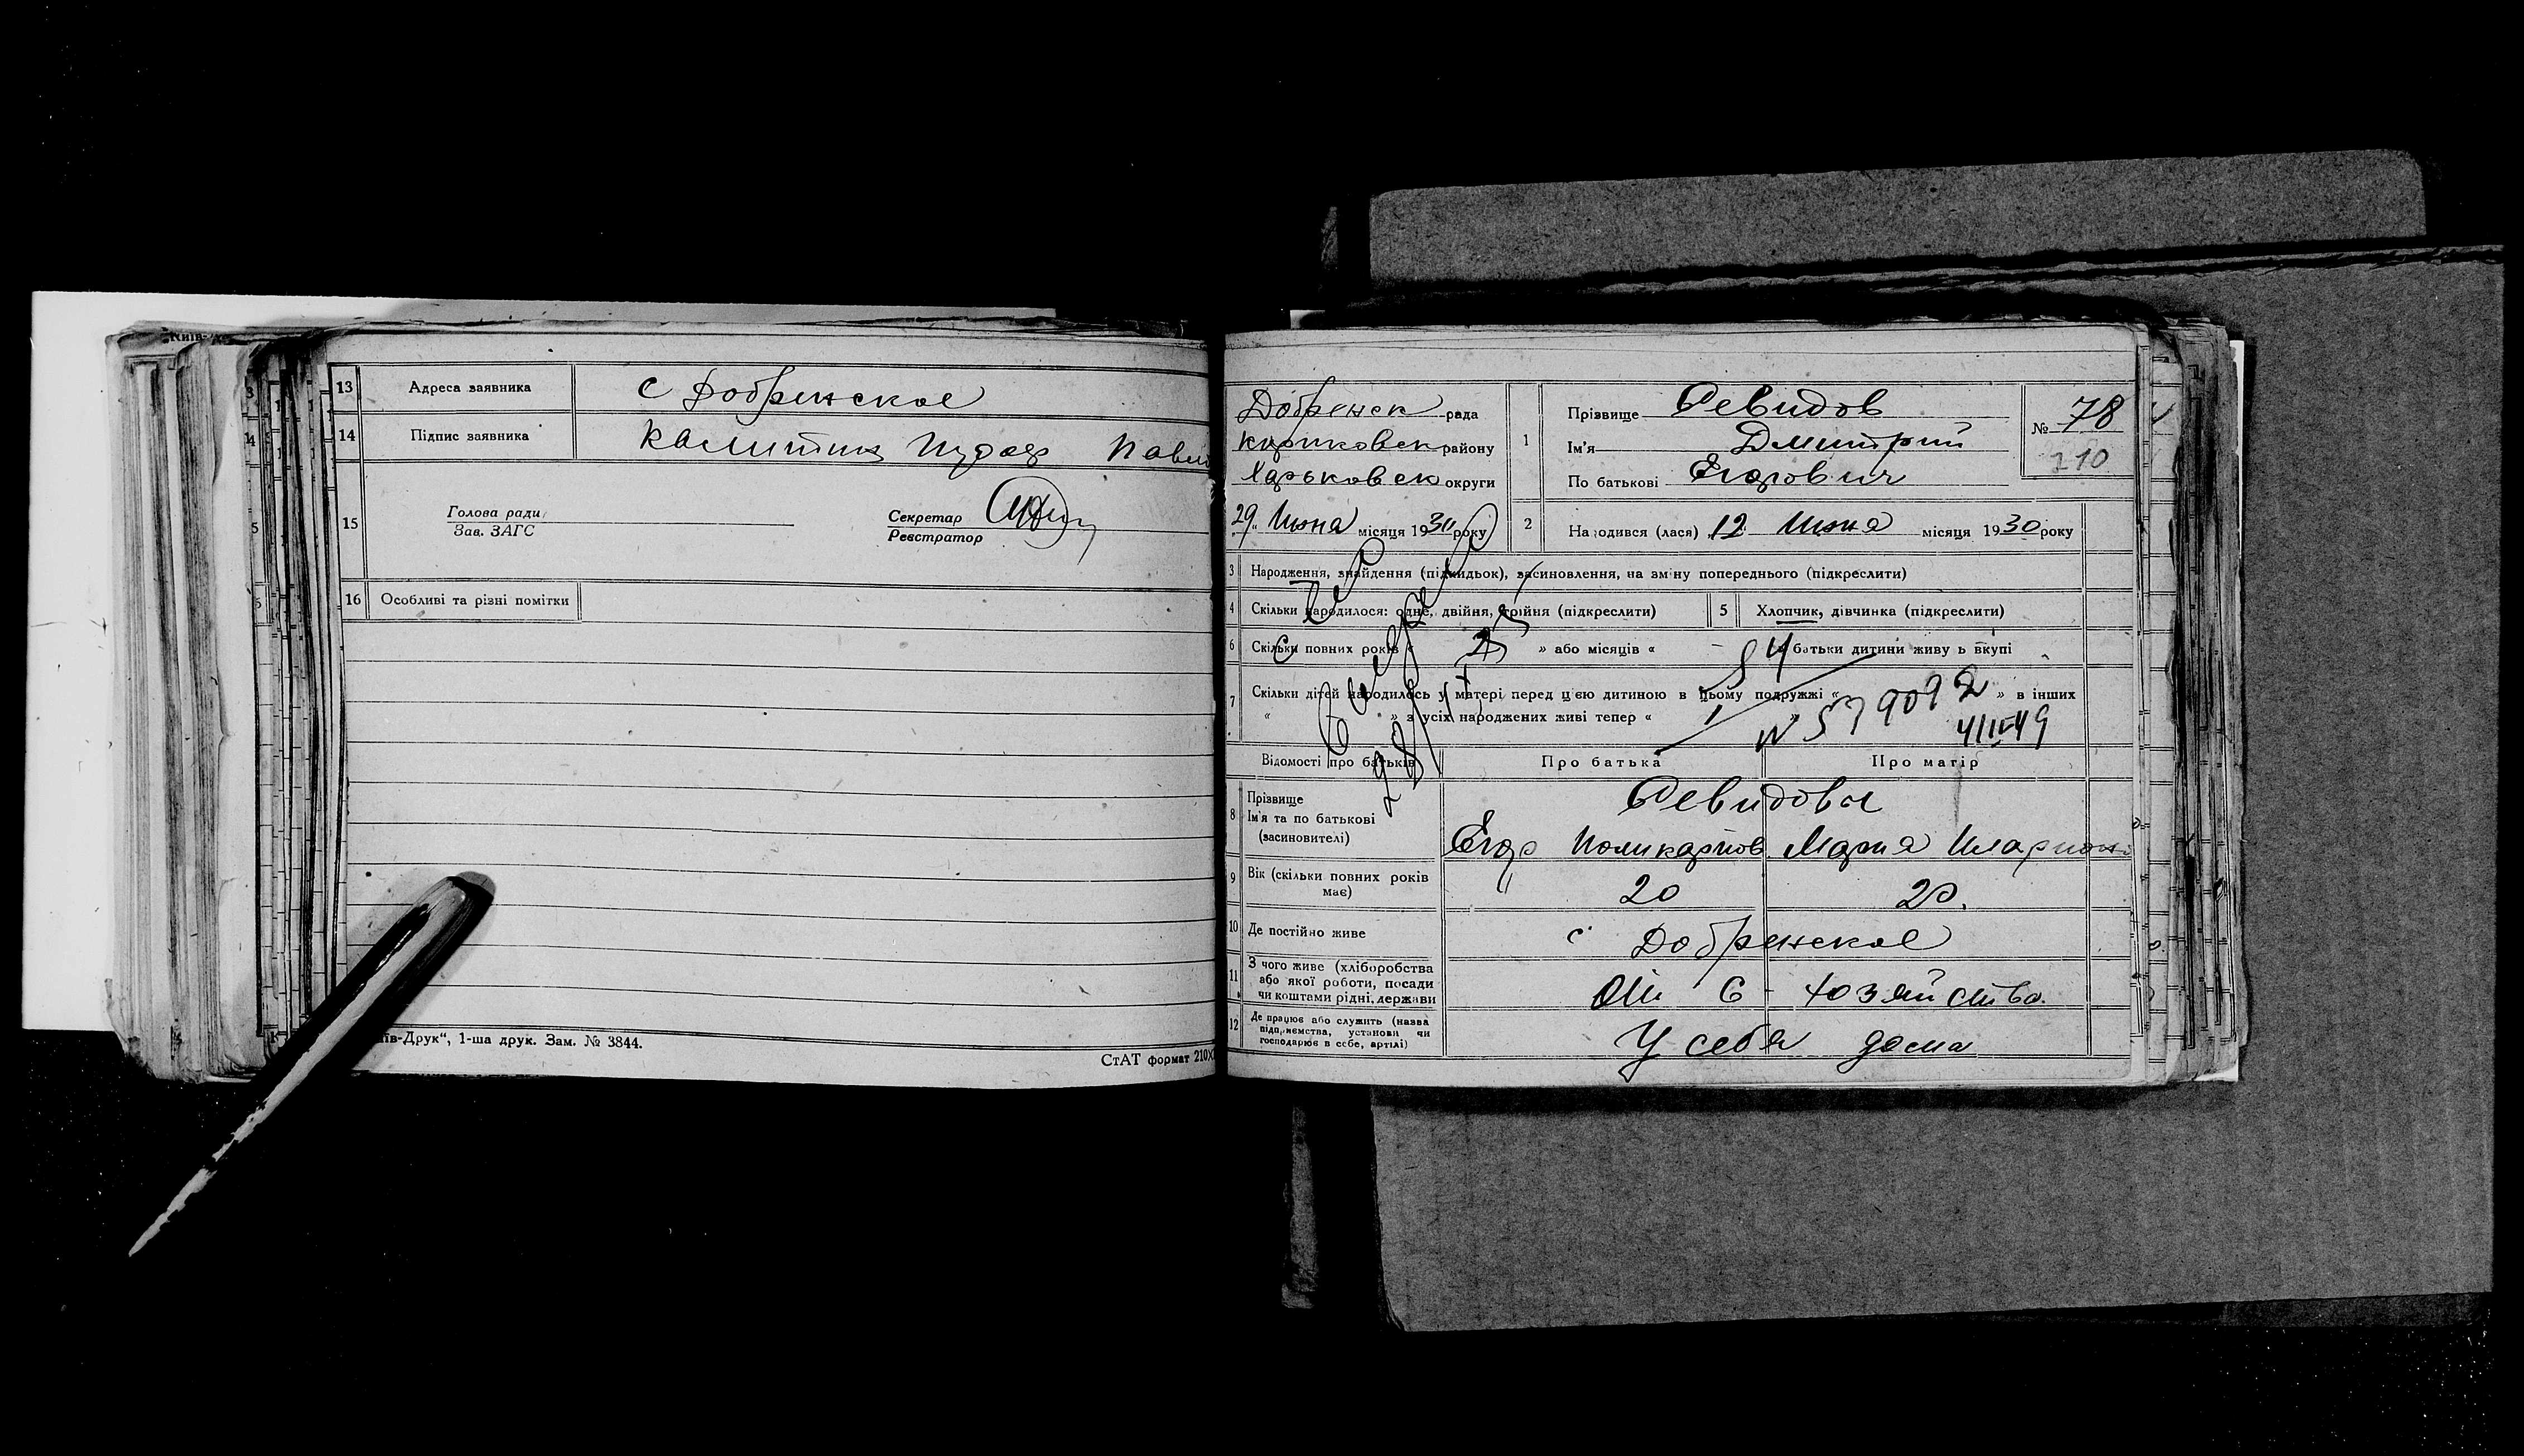 13 Адреса заявника с Добренское
14 Підпис заявника Калитин
15 Голова ради
Зав. ЗАГС
Секретар
Реєстратор
16 Особливі та різні помітки
їв-Друк“, 1-ша друк. Зам. № 3844.
СтАТ формат 210X
Добренск рада
района району
Харьковск округи
29 Июня місяця 1930 року
1 Прізвище Ревидов
Ім'я Дмитрий
По батькові Егорович
№ 78
210
2 Народився (лася) 12 Июня місяця 1930 року
3 Народження, знайдення (підкидьок), засиновлення, на зміну попереднього (підкреслити)
4 Скільки народилося: одне, двійня, трійня (підкреслити)
5 Хлопчик, дівчинка (підкреслити)
6 Скільки повних років « 2 » або місяців « - » батьки дитини живуть вкупі
7 Скільки дітей народилось у матері перед цією дитиною в цьому подружжі « » в інших
« » з усіх народжених живі тепер « 1
N 579092
4/III-49
Відомості про батьків Про батька Про матір
8 Прізвище
Ім'я та по батькові
(засиновителі)
Ревидовы
Егор Поликарпов. Мария Иларионо
9 Вік (скільки повних років має) 20 20.
10 Де постійно живе с Добренское
11 З чого живе (хліборобства
або якої роботи, посади
чи коштами рідні, держави
От С-хозяйства.
12 Де працює або служить (назва
підприємства, установи чи
господарює в себе, артілі)
У себя дома